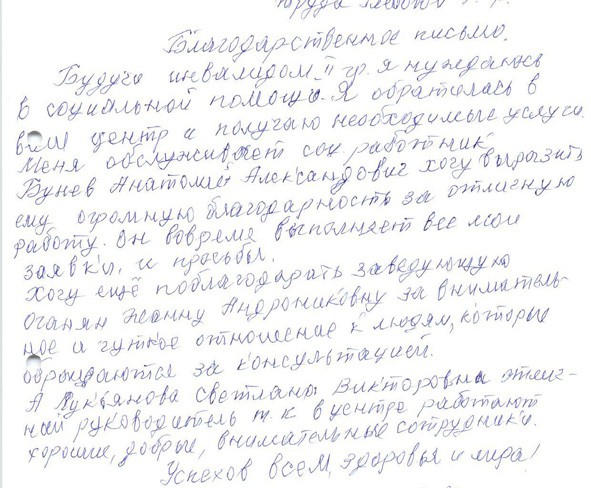 труда
Благодарственное письмо.
Будучи инвалидом II гр. я нуждаюсь
в социальной помощи. Я обратилась в
ваш центр и получаю необходимые услуги.
Меня обслуживает соц. работник
Бунев Анатолий Александович хочу выразить
ему огромную благодарность за отличную
работу. Он вовремя выполняет все мои
заявки, и просьбы.
Хочу ещё поблагодарать заведующую
Оганян Жанну Андрониковну за вниматель-
ное и чуткое отношение к людям, которые
обращаются за консультацией.
А Лукьянова Светлана Викторовна отлич-
ный руководитель т.к в центре работают
хорошие, добрые, внимательные сотрудники.
Успехов всем, здоровья и мира!